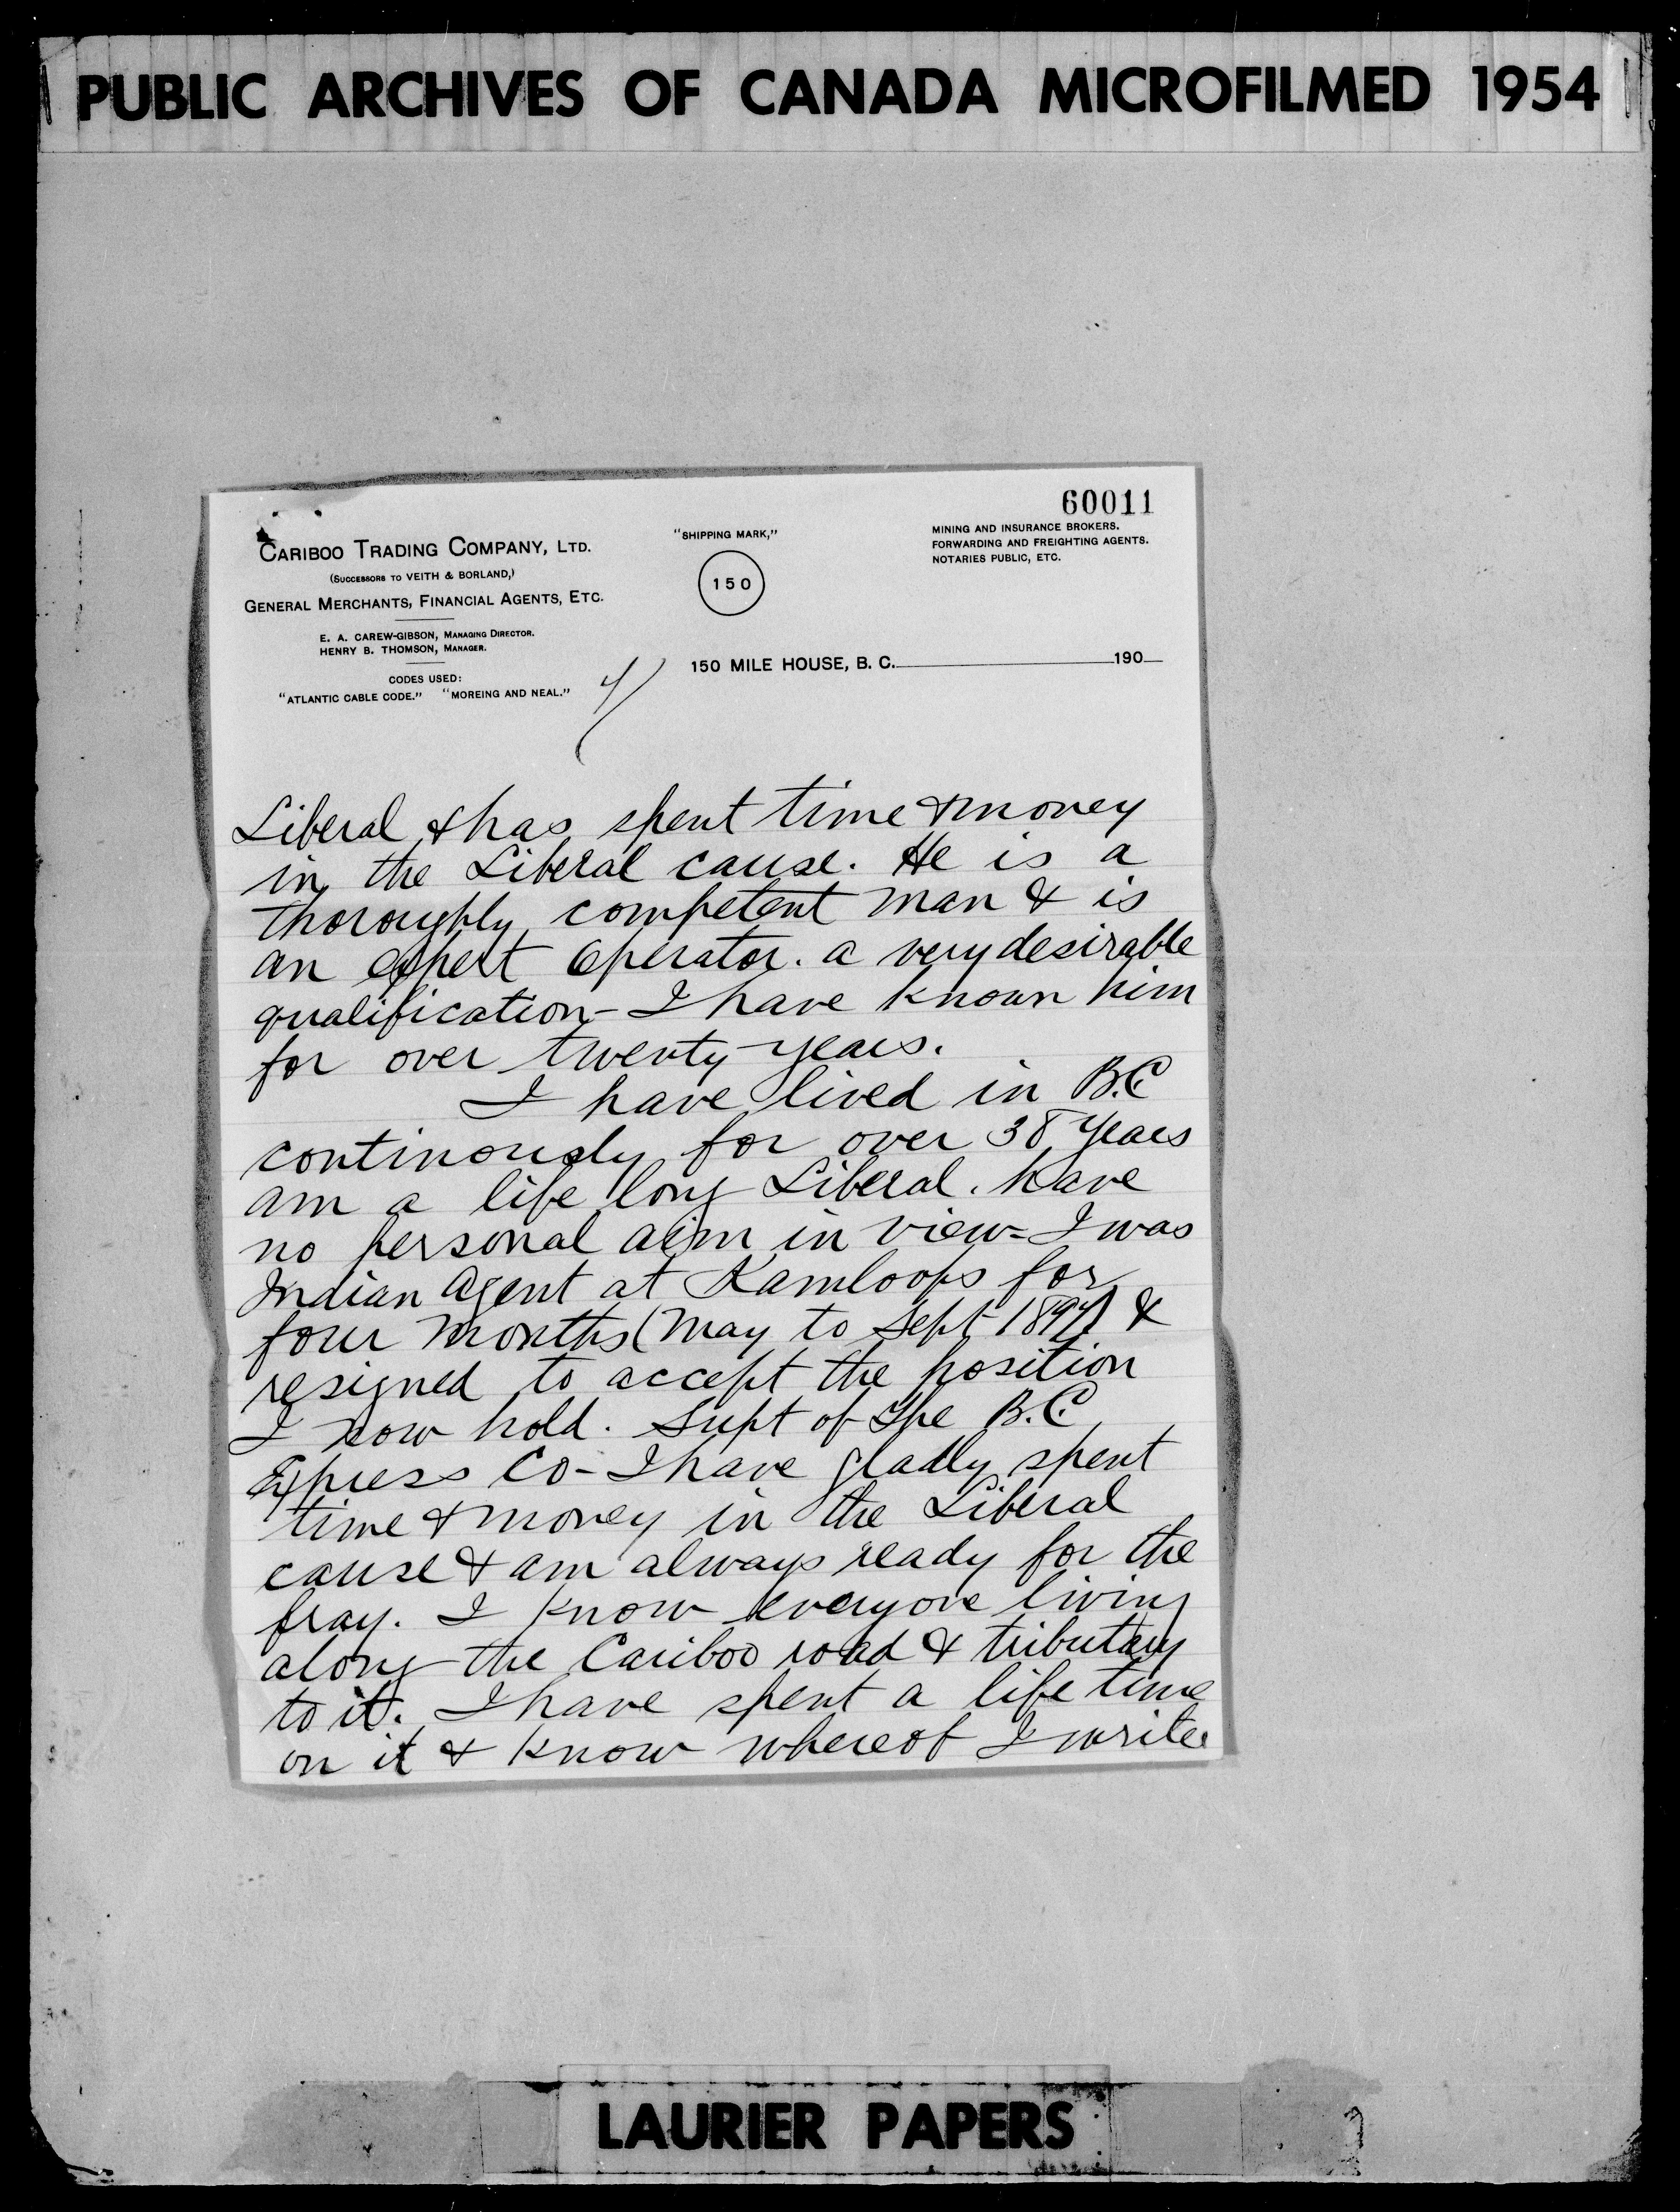 PUBLIC ARCHIVES OF CANADA MICROFILMED 1954
60011
CARIBOO TRADING COMPANY, LTD.
(SUCCESSORS TO VEITH & BORLAND,)
GENERAL MERCHANTS, FINANCIAL AGENTS, ETC.
E. A. CAREW-GIBSON, MANAGING DIRECTOR.
HENRY B. THOMSON, MANAGER.
CODES USED:
"ATLANTIC CABLE CODE." "MOREING AND NEAL."
"SHIPPING MARK,"
150
MINING AND INSURANCE BROKERS.
FORWARDING AND FREIGHTING AGENTS.
NOTARIES PUBLIC, ETC.
150 MILE HOUSE, B. C. 190
4/
Liberal & has spent time & money
in the Liberal cause. He is a
thoroughly competent man & is
an expert operator. a very desirable
qualification - I have known him
for over twenty years.
I have lived in B.C
continously for over 38 years
am a life long Liberal. have
no personal aim in view - I was
Indian Agent at Kamloops for
four months (May to Sept 1897) &
resigned to accept the position
I now hold. Supt of the B.C.
Express Co - I have gladly spent
time & money in the Liberal
cause & am always ready for the
fray. I know everyone living
along the Cariboo road & tributary
to it. I have spent a life time
on it & know whereof I write
LAURIER PAPERS